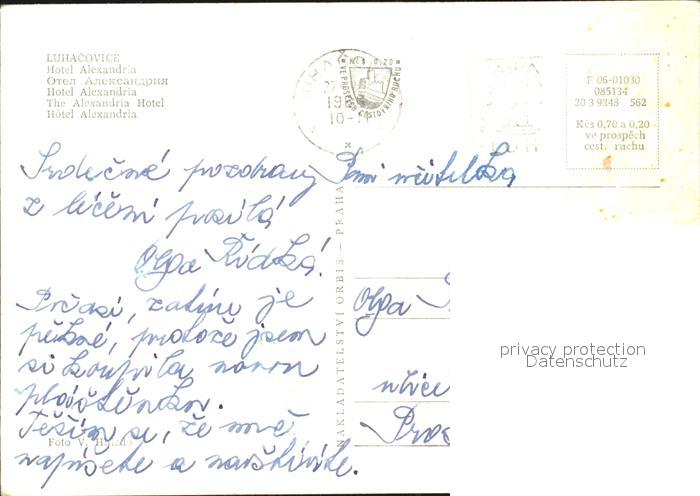 LUHAČOVICE
Hotel Alexandria
Отел Александрия
Hotel Alexandria
The Alexandria Hotel
Hôtel Alexandria
Kčs 0,20
VE PROSPĚCH CESTOVNÍHO RUCHU
F 06-01030
085134
20 3 9248 562
Kčs 0,70 a 0,20
ve prospěch
cest. ruchu
Srdečné pozdravy
z léčení posílá
Olga Řídká.
Počasí, zatím je
pěkné, protože jsem
si koupila novou
pláštěnku.
Těším se, že mně
napíšete a navštívíte.
Foto V.
NAKLADATELSTVÍ ORBIS — PRAHA
Paní učitelka
Olga
ulice
Pros
privacy protection
Datenschutz